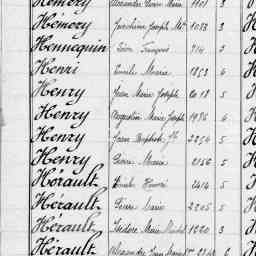 Hemery Alexandre Pierre Marie
Hemery Joachim Joseph Mie 1033 3
Hennequin Léon François 714 3
Henri Emile Marie 1853 6
Henry Jean Marie Joseph 5
Henry Augustin Marie Joseph 1936 6
Henry Jean 2254 5
Henry Pierre Marie 2156 5
Hérault Emile Henri 2414 5
Hérault Pierre Marie 2205 5
Hérault Isidore Marie Michel 1220 3
Hérault Alexandre Jean Marie